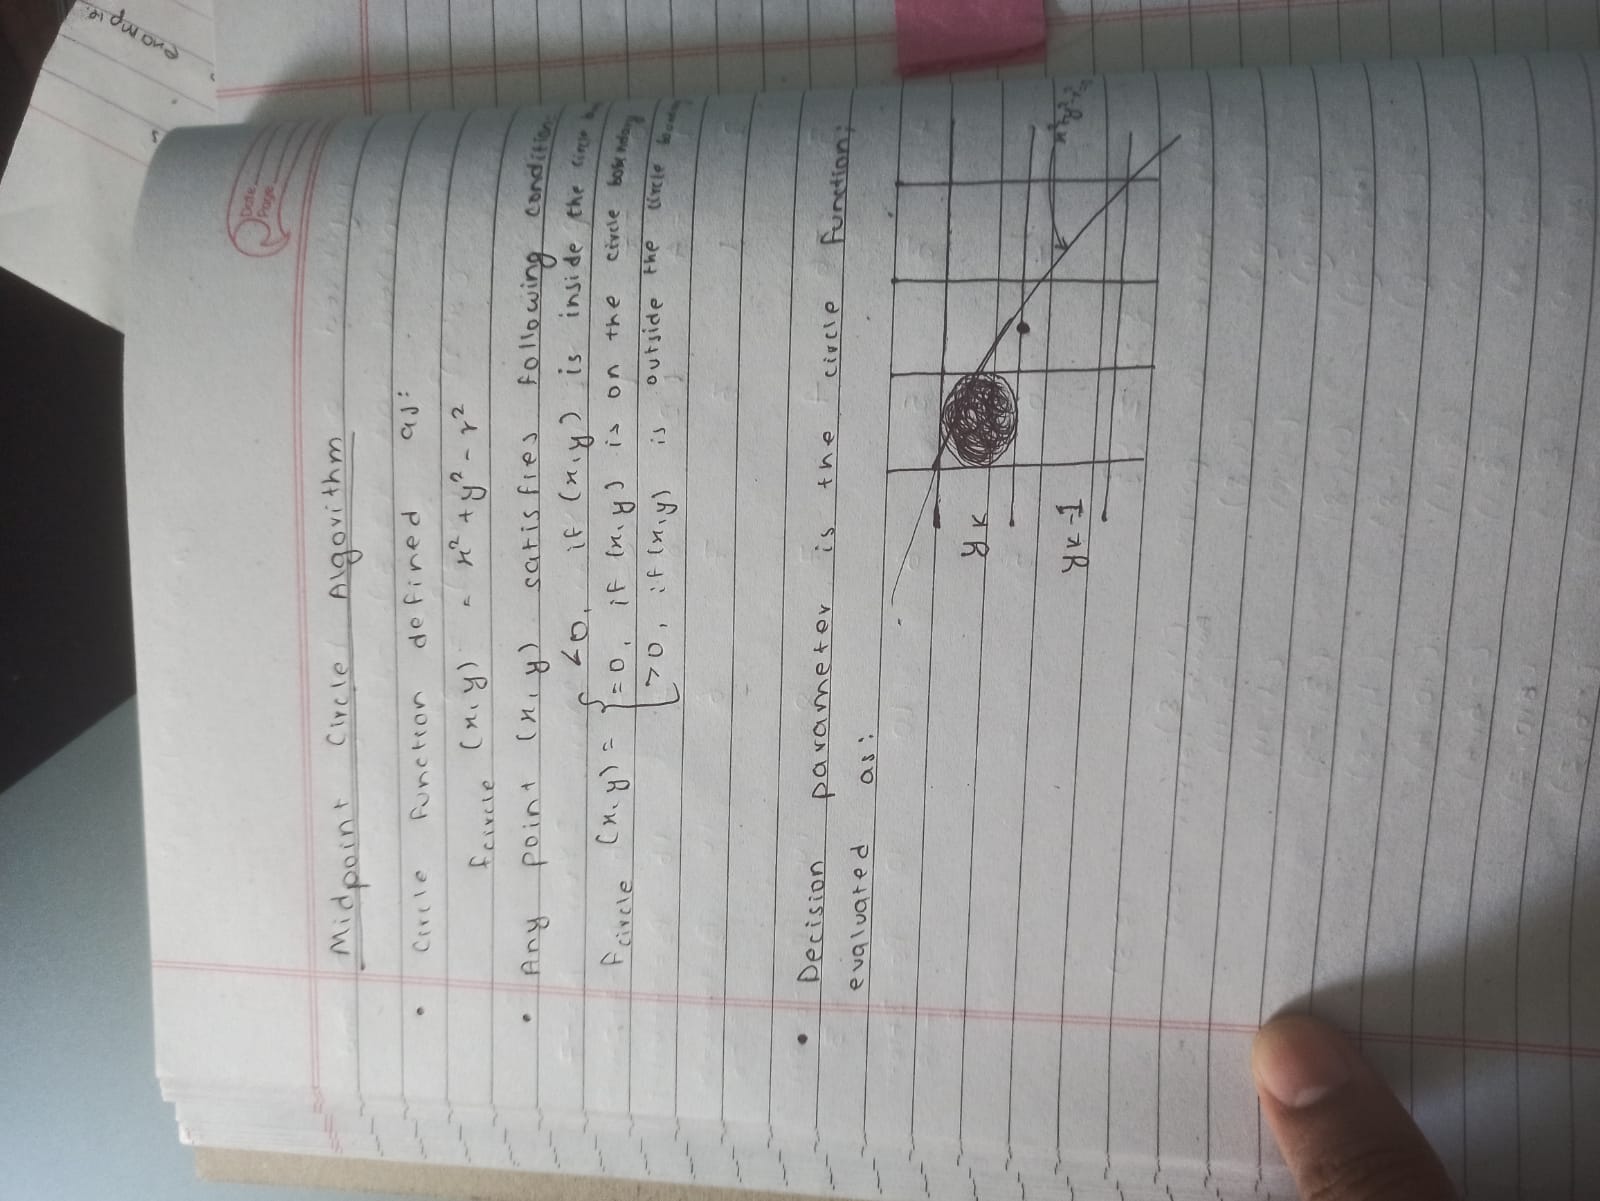 Date
Page
Midpoint Circle Algorithm
• Circle function defined as:
fcircle (x,y) = x² + y² - r²
• Any point (x,y) satisfies following condition:
<0, if (x,y) is inside the circle
fcircle (x,y) = { =0, if (x,y) is on the circle boundary
>0, if (x,y) is outside the circle
• Decision parameter is the circle function;
evaluated as:
yk
yk-1
example.